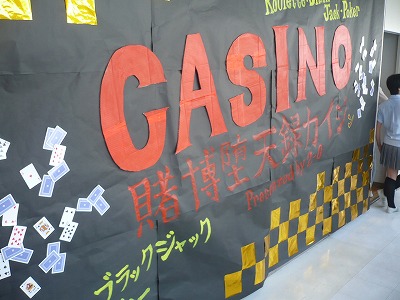 Roulette
Jack Poker
CASINO
賭博堕天録カイジ
Presented by
ブラックジャック